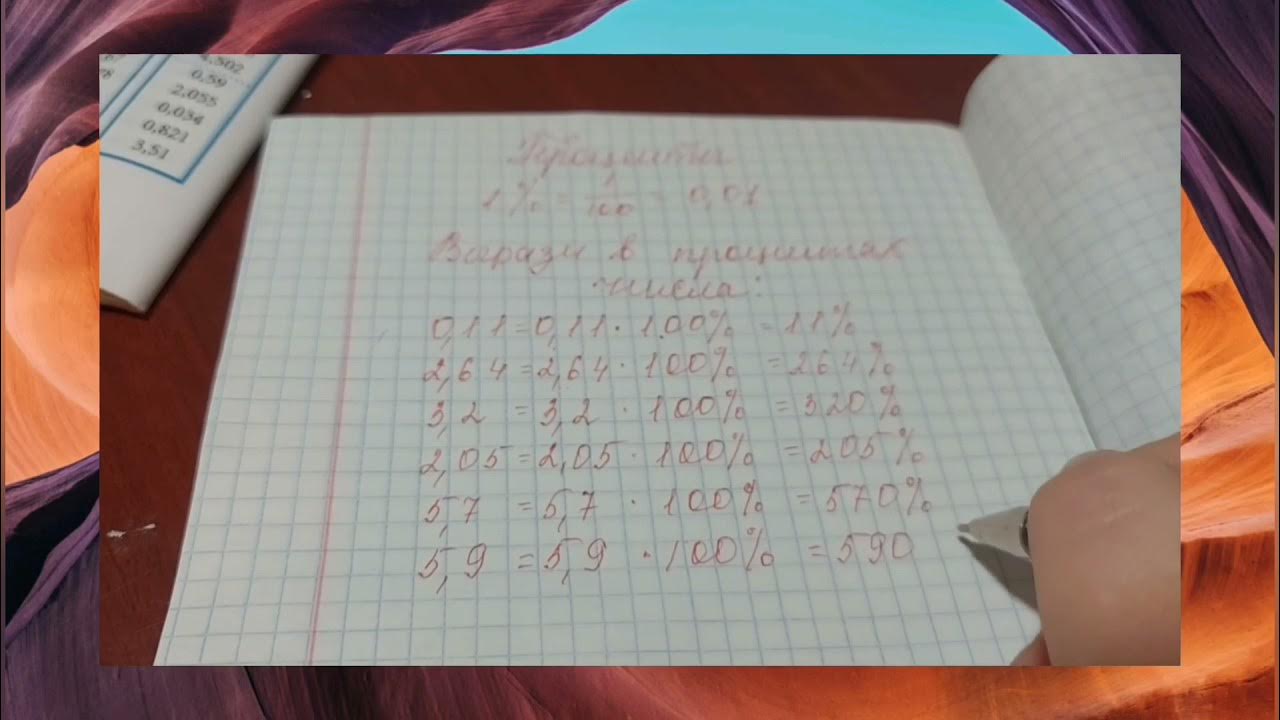 4,502
0,59
2,055
0,034
0,821
3,51
Проценты
1% = 1/100 = 0,01
Вырази в процентах
числа:
0,11 = 0,11 · 100% = 11%
2,64 = 2,64 · 100% = 264%
3,2 = 3,2 · 100% = 320%
2,05 = 2,05 · 100% = 205%
5,7 = 5,7 · 100% = 570%
5,9 = 5,9 · 100% = 590